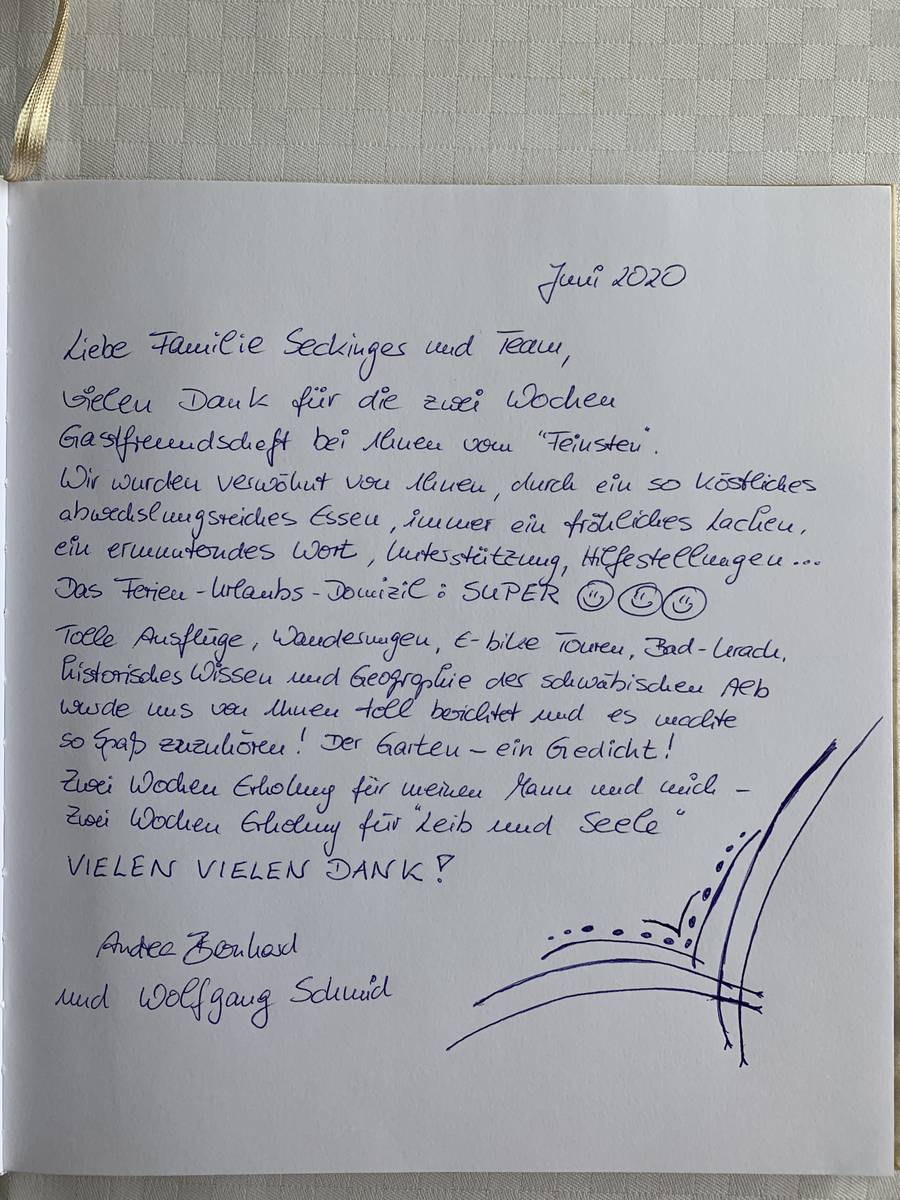 Juni 2020
Liebe Familie Seckinger und Team,
vielen Dank für die zwei Wochen
Gastfreundschaft bei Ihnen vom "Feinsten".
Wir wurden verwöhnt von Ihnen, durch ein so köstliches
abwechslungsreiches Essen, immer ein fröhliches Lachen,
ein ermunterndes Wort, Unterstützung, Hilfestellungen...
Das Ferien-Urlaubs-Domizil: SUPER
Tolle Ausflüge, Wanderungen, E-bike Touren, Bad-Urach,
historisches Wissen und Geographie der schwäbischen Alb
wurde uns von Ihnen toll berichtet und es machte
so Spaß zuzuhören! Der Garten - ein Gedicht!
Zwei Wochen Erholung für meinen Mann und mich -
Zwei Wochen Erholung für "Leib und Seele"
VIELEN VIELEN DANK!
Andrea
und Wolfgang Schmid